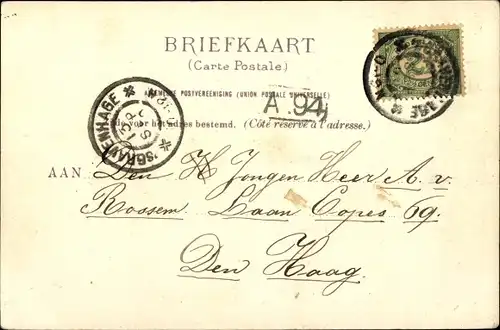 BRIEFKAART
(Carte Postale)
POSTVEREENIGING (UNION POSTALE UNIVERSELLE)
A.94
voor het adres bestemd. (Côté réservé à l'adresse.)
'SGRAVENHAGE
AAN Den H Jongen Heer A. v.
Rossem. Laan Copes 69.
Den Haag